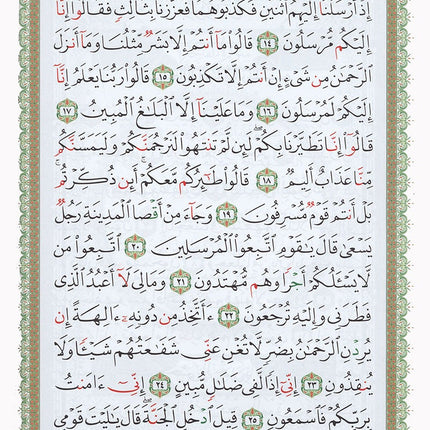 إِذْ أَرْسَلْنَآ إِلَيْهِمُ ٱثْنَيْنِ فَكَذَّبُوهُمَا فَعَزَّزْنَا بِثَالِثٍ فَقَالُوٓا۟ إِنَّآ
إِلَيْكُم مُّرْسَلُونَ ١٤ قَالُوا۟ مَآ أَنتُمْ إِلَّا بَشَرٌ مِّثْلُنَا وَمَآ أَنزَلَ
ٱلرَّحْمَٰنُ مِن شَىْءٍ إِنْ أَنتُمْ إِلَّا تَكْذِبُونَ ١٥ قَالُوا۟ رَبُّنَا يَعْلَمُ إِنَّآ
إِلَيْكُمْ لَمُرْسَلُونَ ١٦ وَمَا عَلَيْنَآ إِلَّا ٱلْبَلَٰغُ ٱلْمُبِينُ ١٧
قَالُوٓا۟ إِنَّا تَطَيَّرْنَا بِكُمْ لَئِن لَّمْ تَنتَهُوا۟ لَنَرْجُمَنَّكُمْ وَلَيَمَسَّنَّكُم
مِّنَّا عَذَابٌ أَلِيمٌ ١٨ قَالُوا۟ طَٰٓئِرُكُم مَّعَكُمْ أَئِن ذُكِّرْتُم
بَلْ أَنتُمْ قَوْمٌ مُّسْرِفُونَ ١٩ وَجَآءَ مِنْ أَقْصَا ٱلْمَدِينَةِ رَجُلٌ
يَسْعَىٰ قَالَ يَٰقَوْمِ ٱتَّبِعُوا۟ ٱلْمُرْسَلِينَ ٢٠ ٱتَّبِعُوا۟ مَن
لَّا يَسْـَٔلُكُمْ أَجْرًا وَهُم مُّهْتَدُونَ ٢١ وَمَا لِىَ لَآ أَعْبُدُ ٱلَّذِى
فَطَرَنِى وَإِلَيْهِ تُرْجَعُونَ ٢٢ ءَأَتَّخِذُ مِن دُونِهِۦٓ ءَالِهَةً إِن
يُرِدْنِ ٱلرَّحْمَٰنُ بِضُرٍّ لَّا تُغْنِ عَنِّى شَفَٰعَتُهُمْ شَيْـًٔا وَلَا
يُنقِذُونِ ٢٣ إِنِّىٓ إِذًا لَّفِى ضَلَٰلٍ مُّبِينٍ ٢٤ إِنِّىٓ ءَامَنتُ
بِرَبِّكُمْ فَٱسْمَعُونِ ٢٥ قِيلَ ٱدْخُلِ ٱلْجَنَّةَ قَالَ يَٰلَيْتَ قَوْمِى